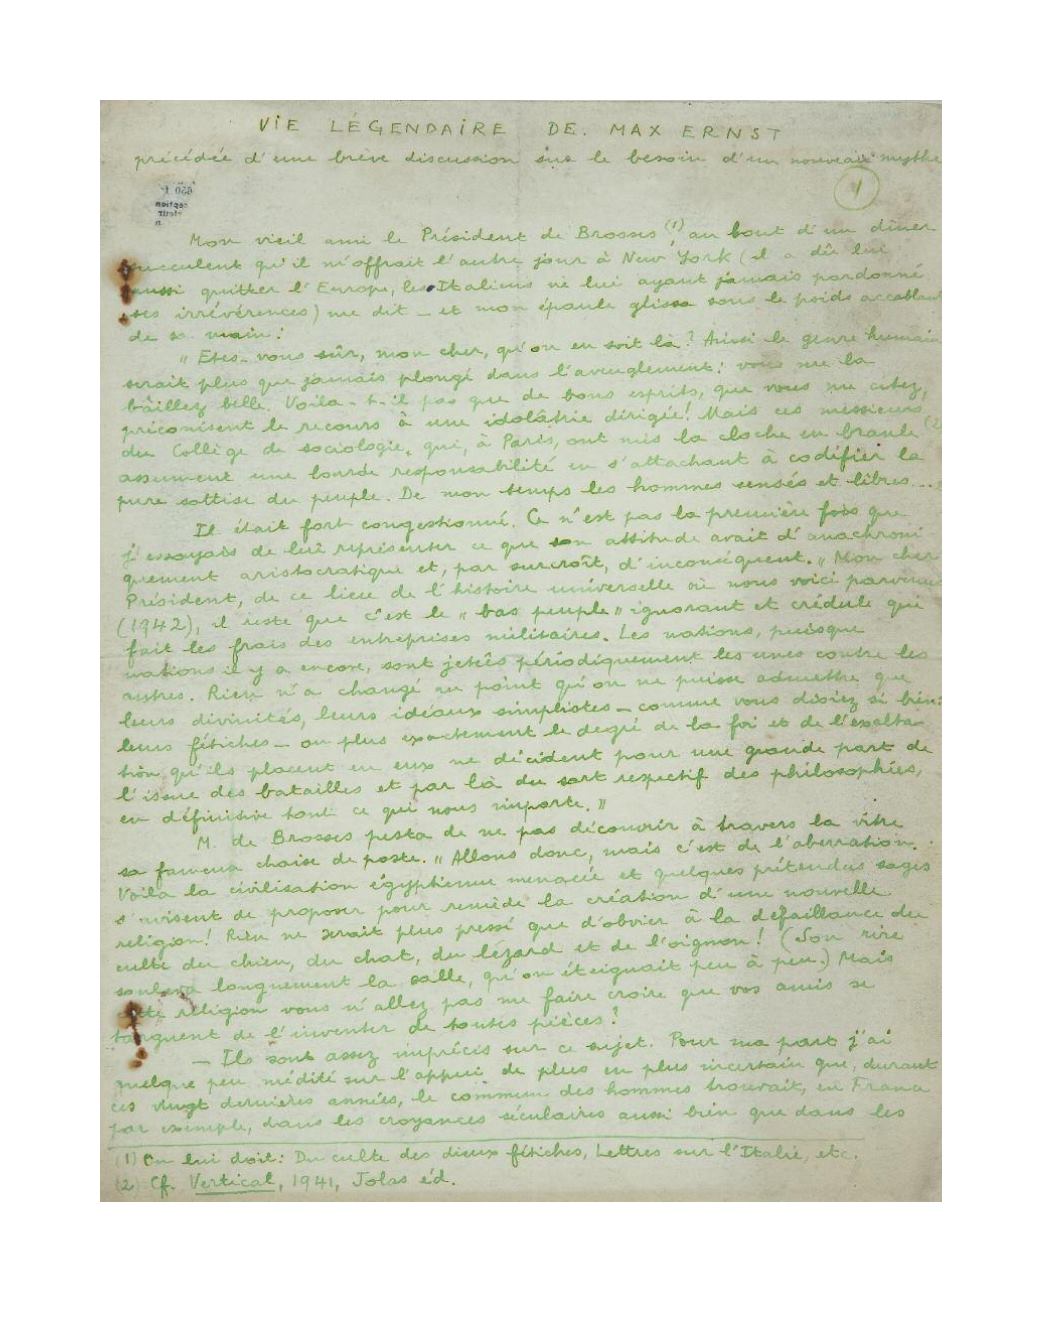 VIE LÉGENDAIRE DE MAX ERNST
précédée d'une brève discussion sur le besoin d'un nouveau mythe
1
Mon vieil ami le Président de Brosses (1), au bout d'un dîner
succulent qu'il m'offrait l'autre jour à New York (il a dû lui
aussi quitter l'Europe, les Italiens ne lui ayant jamais pardonné
ses irrévérences) me dit — et mon épaule glissa sous le poids accablant
de sa main :
" Etes-vous sûr, mon cher, qu'on en soit là ? Ainsi le genre humain
serait plus que jamais plongé dans l'aveuglement : vous me la
baillez belle. Voilà-t-il pas que de bons esprits, que vous me citez,
préconisent le recours à une idolâtrie dirigée ! Mais ces messieurs
du Collège de sociologie, qui, à Paris, ont mis la cloche en branle (2)
assument une lourde responsabilité en s'attachant à codifier la
pure sottise du peuple. De mon temps les hommes sensés et libres...
Il était fort congestionné. Ce n'est pas la première fois que
j'essayais de lui représenter ce que son attitude avait d'anachroni-
quement aristocratique et, par surcroît, d'inconséquent. " Mon cher
Président, de ce lieu de l'histoire universelle où nous voici parvenus
(1942), il reste que c'est le " bas peuple " ignorant et crédule qui
fait les frais des entreprises militaires. Les nations, puisque
nations il y a encore, sont jetées périodiquement les unes contre les
autres. Rien n'a changé au point qu'on ne puisse admettre que
leurs divinités, leurs idéaux simplistes — comme vous disiez si bien :
leurs fétiches — ou plus exactement le degré de la foi et de l'exalta-
tion qu'ils placent en eux ne décident pour une grande part de
l'issue des batailles et par là du sort respectif des philosophies,
en définitive tout ce qui nous importe. "
M. de Brosses pesta de ne pas découvrir à travers la vitre
sa fameuse chaise de poste. " Allons donc, mais c'est de l'aberration.
Voilà la civilisation égyptienne menacée et quelques prétendus sages
s'avisent de proposer pour remède la création d'une nouvelle
religion ! Rien ne serait plus pressé que d'obvier à la défaillance du
culte du chien, du chat, du lézard et de l'oignon ! (Son rire
souleva longuement la salle, qu'on éteignait peu à peu.) Mais
cette religion vous n'allez pas me faire croire que vos amis se
targuent de l'inventer de toutes pièces ?
— Ils sont assez imprécis sur ce sujet. Pour ma part j'ai
quelque peu médité sur l'appui de plus en plus incertain que, durant
ces vingt dernières années, le commun des hommes trouvait, en France
par exemple, dans les croyances séculaires aussi bien que dans les
(1) On lui doit : Du culte des dieux fétiches, Lettres sur l'Italie, etc.
(2) Cf. Vertical, 1941, Jolas éd.